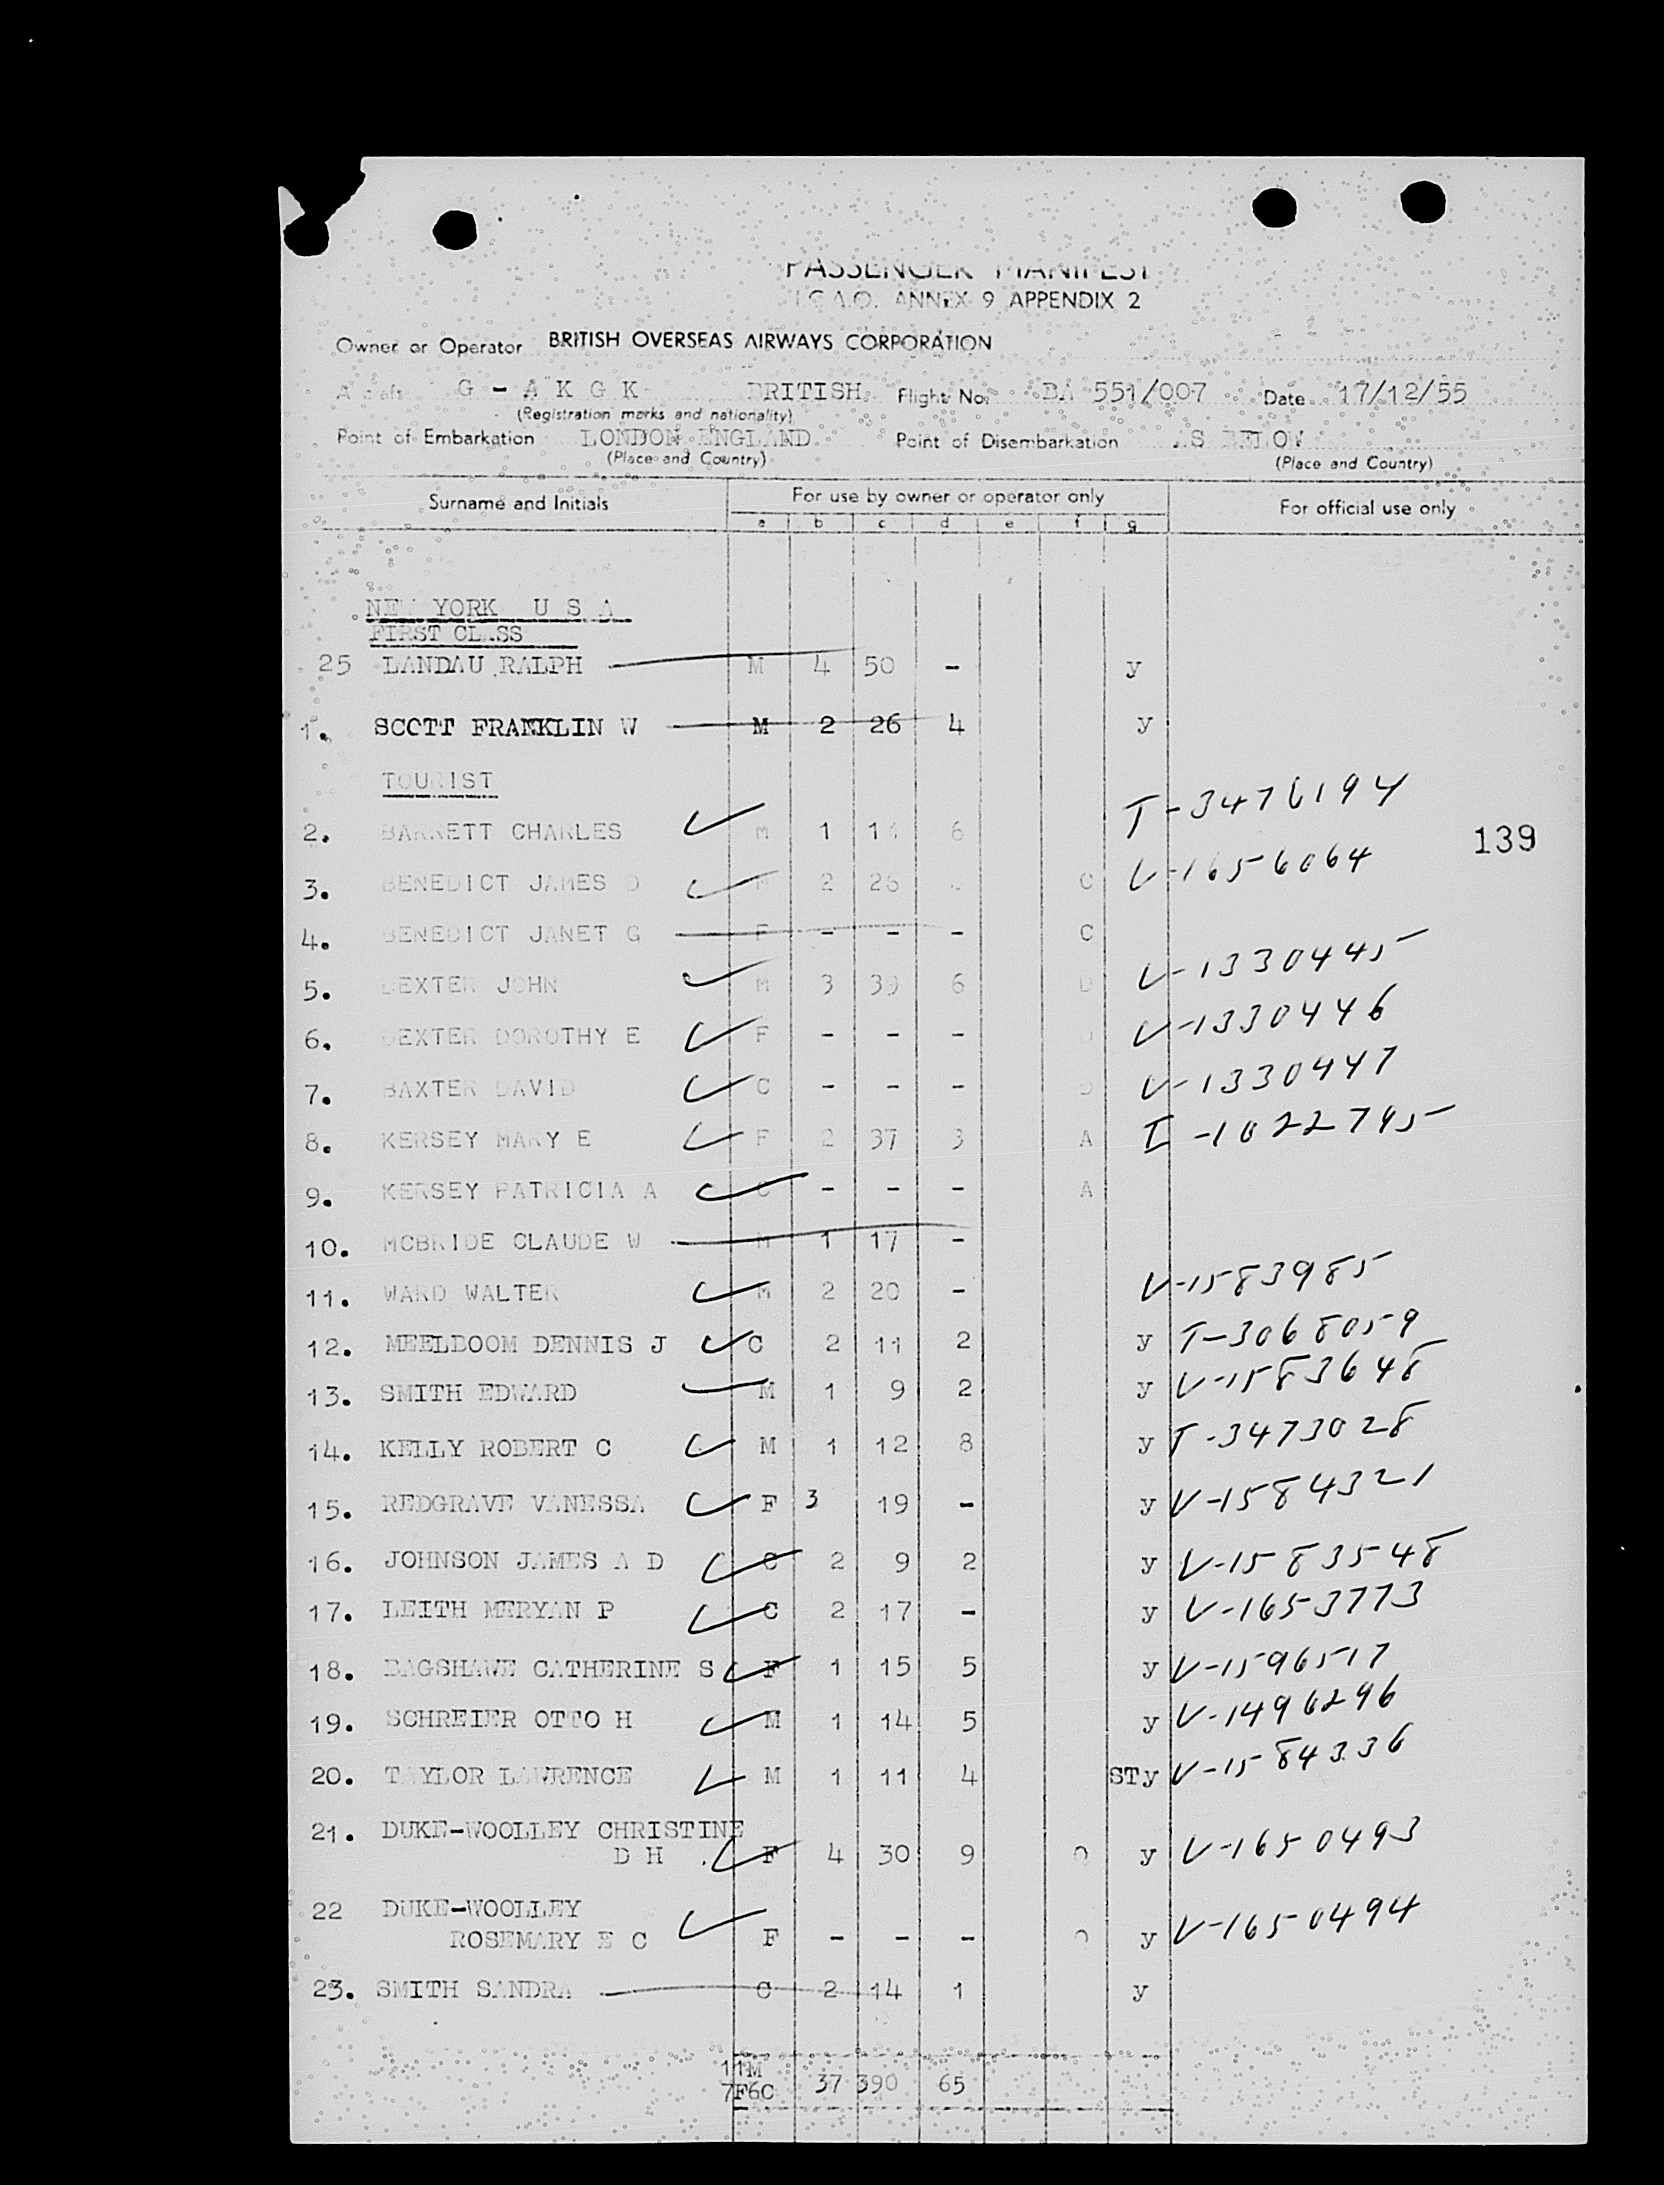 PASSENGER MANIFEST
I.C.A.O. ANNEX 9 APPENDIX 2
Owner or Operator BRITISH OVERSEAS AIRWAYS CORPORATION
Aircraft G - A K G K BRITISH Flight No. BA 551/007 Date 17/12/55
(Registration marks and nationality)
Point of Embarkation LONDON ENGLAND Point of Disembarkation AS BELOW
(Place and Country) (Place and Country)
Surname and Initials For use by owner or operator only For official use only
a b c d e f g
NEW YORK U S A
FIRST CLASS
25 LANDAU RALPH M 4 50 - y
1. SCOTT FRANKLIN W M 2 26 4 y
TOURIST
2. BARRETT CHARLES M 1 6 T-3476194
139
3. BENEDICT JAMES D M 2 26 C V-1656064
4. BENEDICT JANET G F - - - C
5. DEXTER JOHN M 3 39 6 D V-1330445
6. DEXTER DOROTHY E F - - - D V-1330446
7. BAXTER DAVID C - - - D V-1330447
8. KERSEY MARY E F 2 37 3 A I-1022795
9. KERSEY PATRICIA A C - - - A
10. MCBRIDE CLAUDE W M 1 17 -
11. WARD WALTER M 2 20 - V-1583985
12. MEELBOOM DENNIS J C 2 11 2 y T-3068059
13. SMITH EDWARD M 1 9 2 y V-1583648
14. KELLY ROBERT C M 1 12 8 y T-3473028
15. REDGRAVE VANESSA F 3 19 - y V-1584321
16. JOHNSON JAMES A D C 2 9 2 y V-1583548
17. LEITH MERYAN P C 2 17 - y V-1653773
18. BAGSHAWE CATHERINE S F 1 15 5 y V-1596517
19. SCHREIER OTTO H M 1 14 5 y V-1496296
20. TAYLOR LAWRENCE M 1 11 4 STy V-1584336
21. DUKE-WOOLLEY CHRISTINE
D H F 4 30 9 y V-1650493
22 DUKE-WOOLLEY
ROSEMARY E C F - - - y V-1650494
23. SMITH SANDRA C 2 14 1 y
11M
7F6C 37 390 65